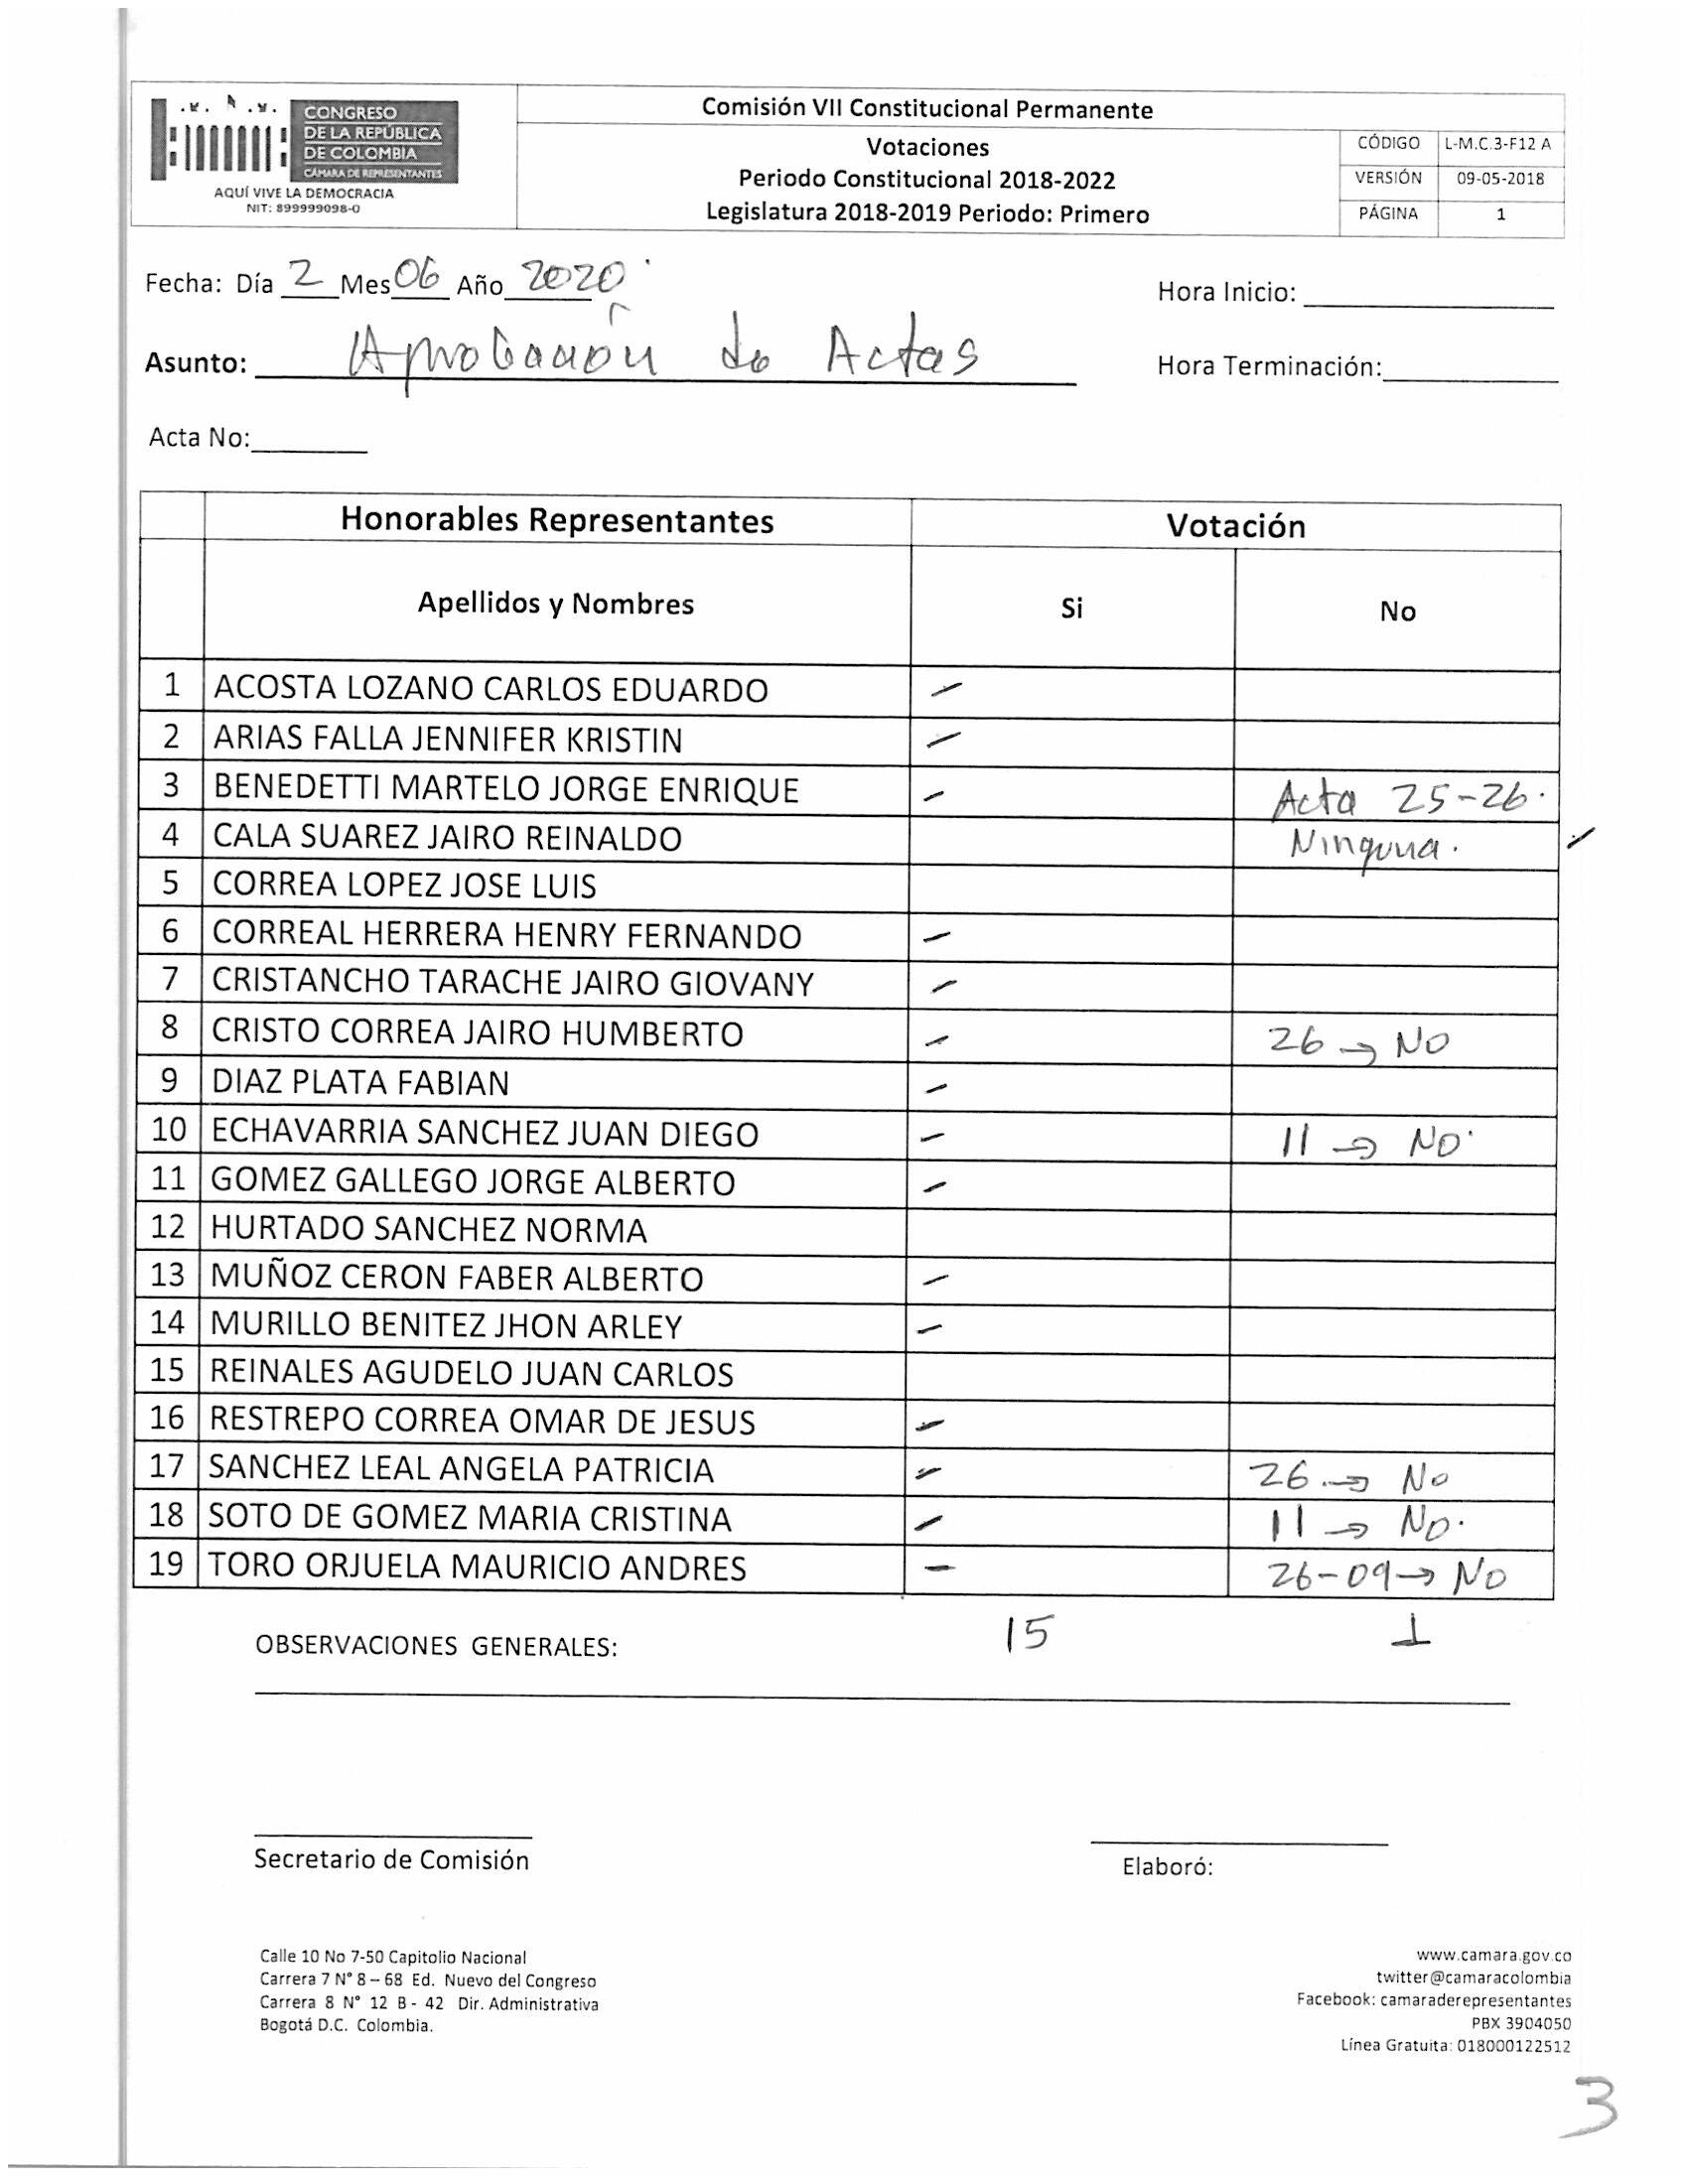 CONGRESO
DE LA REPÚBLICA
DE COLOMBIA
CÁMARA DE REPRESENTANTES
AQUÍ VIVE LA DEMOCRACIA
NIT: 899999098-0
Comisión VII Constitucional Permanente
Votaciones
Periodo Constitucional 2018-2022
Legislatura 2018-2019 Periodo: Primero
CÓDIGO L-M.C.3-F12 A
VERSIÓN 09-05-2018
PÁGINA 1
Fecha: Día 2 Mes 06 Año 2020
Hora Inicio:
Asunto: Aprobación de Actas
Hora Terminación:
Acta No:
Honorables Representantes Votación
Apellidos y Nombres Si No
1 ACOSTA LOZANO CARLOS EDUARDO –
2 ARIAS FALLA JENNIFER KRISTIN –
3 BENEDETTI MARTELO JORGE ENRIQUE – Acta 25-26.
4 CALA SUAREZ JAIRO REINALDO Ninguna. –
5 CORREA LOPEZ JOSE LUIS
6 CORREAL HERRERA HENRY FERNANDO –
7 CRISTANCHO TARACHE JAIRO GIOVANY –
8 CRISTO CORREA JAIRO HUMBERTO – 26 → No
9 DIAZ PLATA FABIAN –
10 ECHAVARRIA SANCHEZ JUAN DIEGO – 11 → No.
11 GOMEZ GALLEGO JORGE ALBERTO –
12 HURTADO SANCHEZ NORMA
13 MUÑOZ CERON FABER ALBERTO –
14 MURILLO BENITEZ JHON ARLEY –
15 REINALES AGUDELO JUAN CARLOS
16 RESTREPO CORREA OMAR DE JESUS –
17 SANCHEZ LEAL ANGELA PATRICIA – 26 → No
18 SOTO DE GOMEZ MARIA CRISTINA – 11 → No.
19 TORO ORJUELA MAURICIO ANDRES – 26-09 → No
OBSERVACIONES GENERALES: 15 1
Secretario de Comisión
Elaboró:
Calle 10 No 7-50 Capitolio Nacional
Carrera 7 N° 8 – 68 Ed. Nuevo del Congreso
Carrera 8 N° 12 B - 42 Dir. Administrativa
Bogotá D.C. Colombia.
www.camara.gov.co
twitter@camaracolombia
Facebook: camaraderepresentantes
PBX 3904050
Línea Gratuita: 018000122512
3